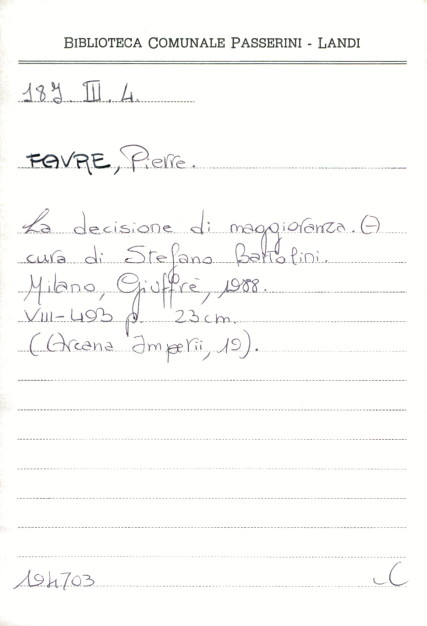 BIBLIOTECA COMUNALE PASSERINI - LANDI
187. III. 4.
FAVRE, Pierre.
La decisione di maggioranza. (-)
cura di Stefano Bartolini.
Milano, Giuffrè, 1988.
VIII-493 p. 23 cm.
(Arcana Imperii, 19).
194703
C